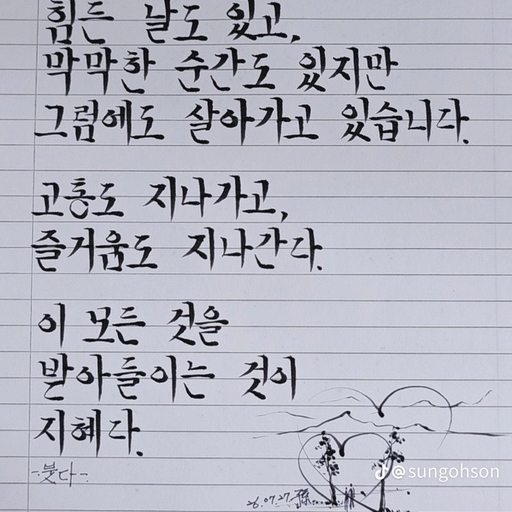 힘든 날도 있고,
막막한 순간도 있지만
그럼에도 살아가고 있습니다.
고통도 지나가고,
즐거움도 지나간다.
이 모든 것을
받아들이는 것이
지혜다.
-붓다-
@sungohson
26.07.27.